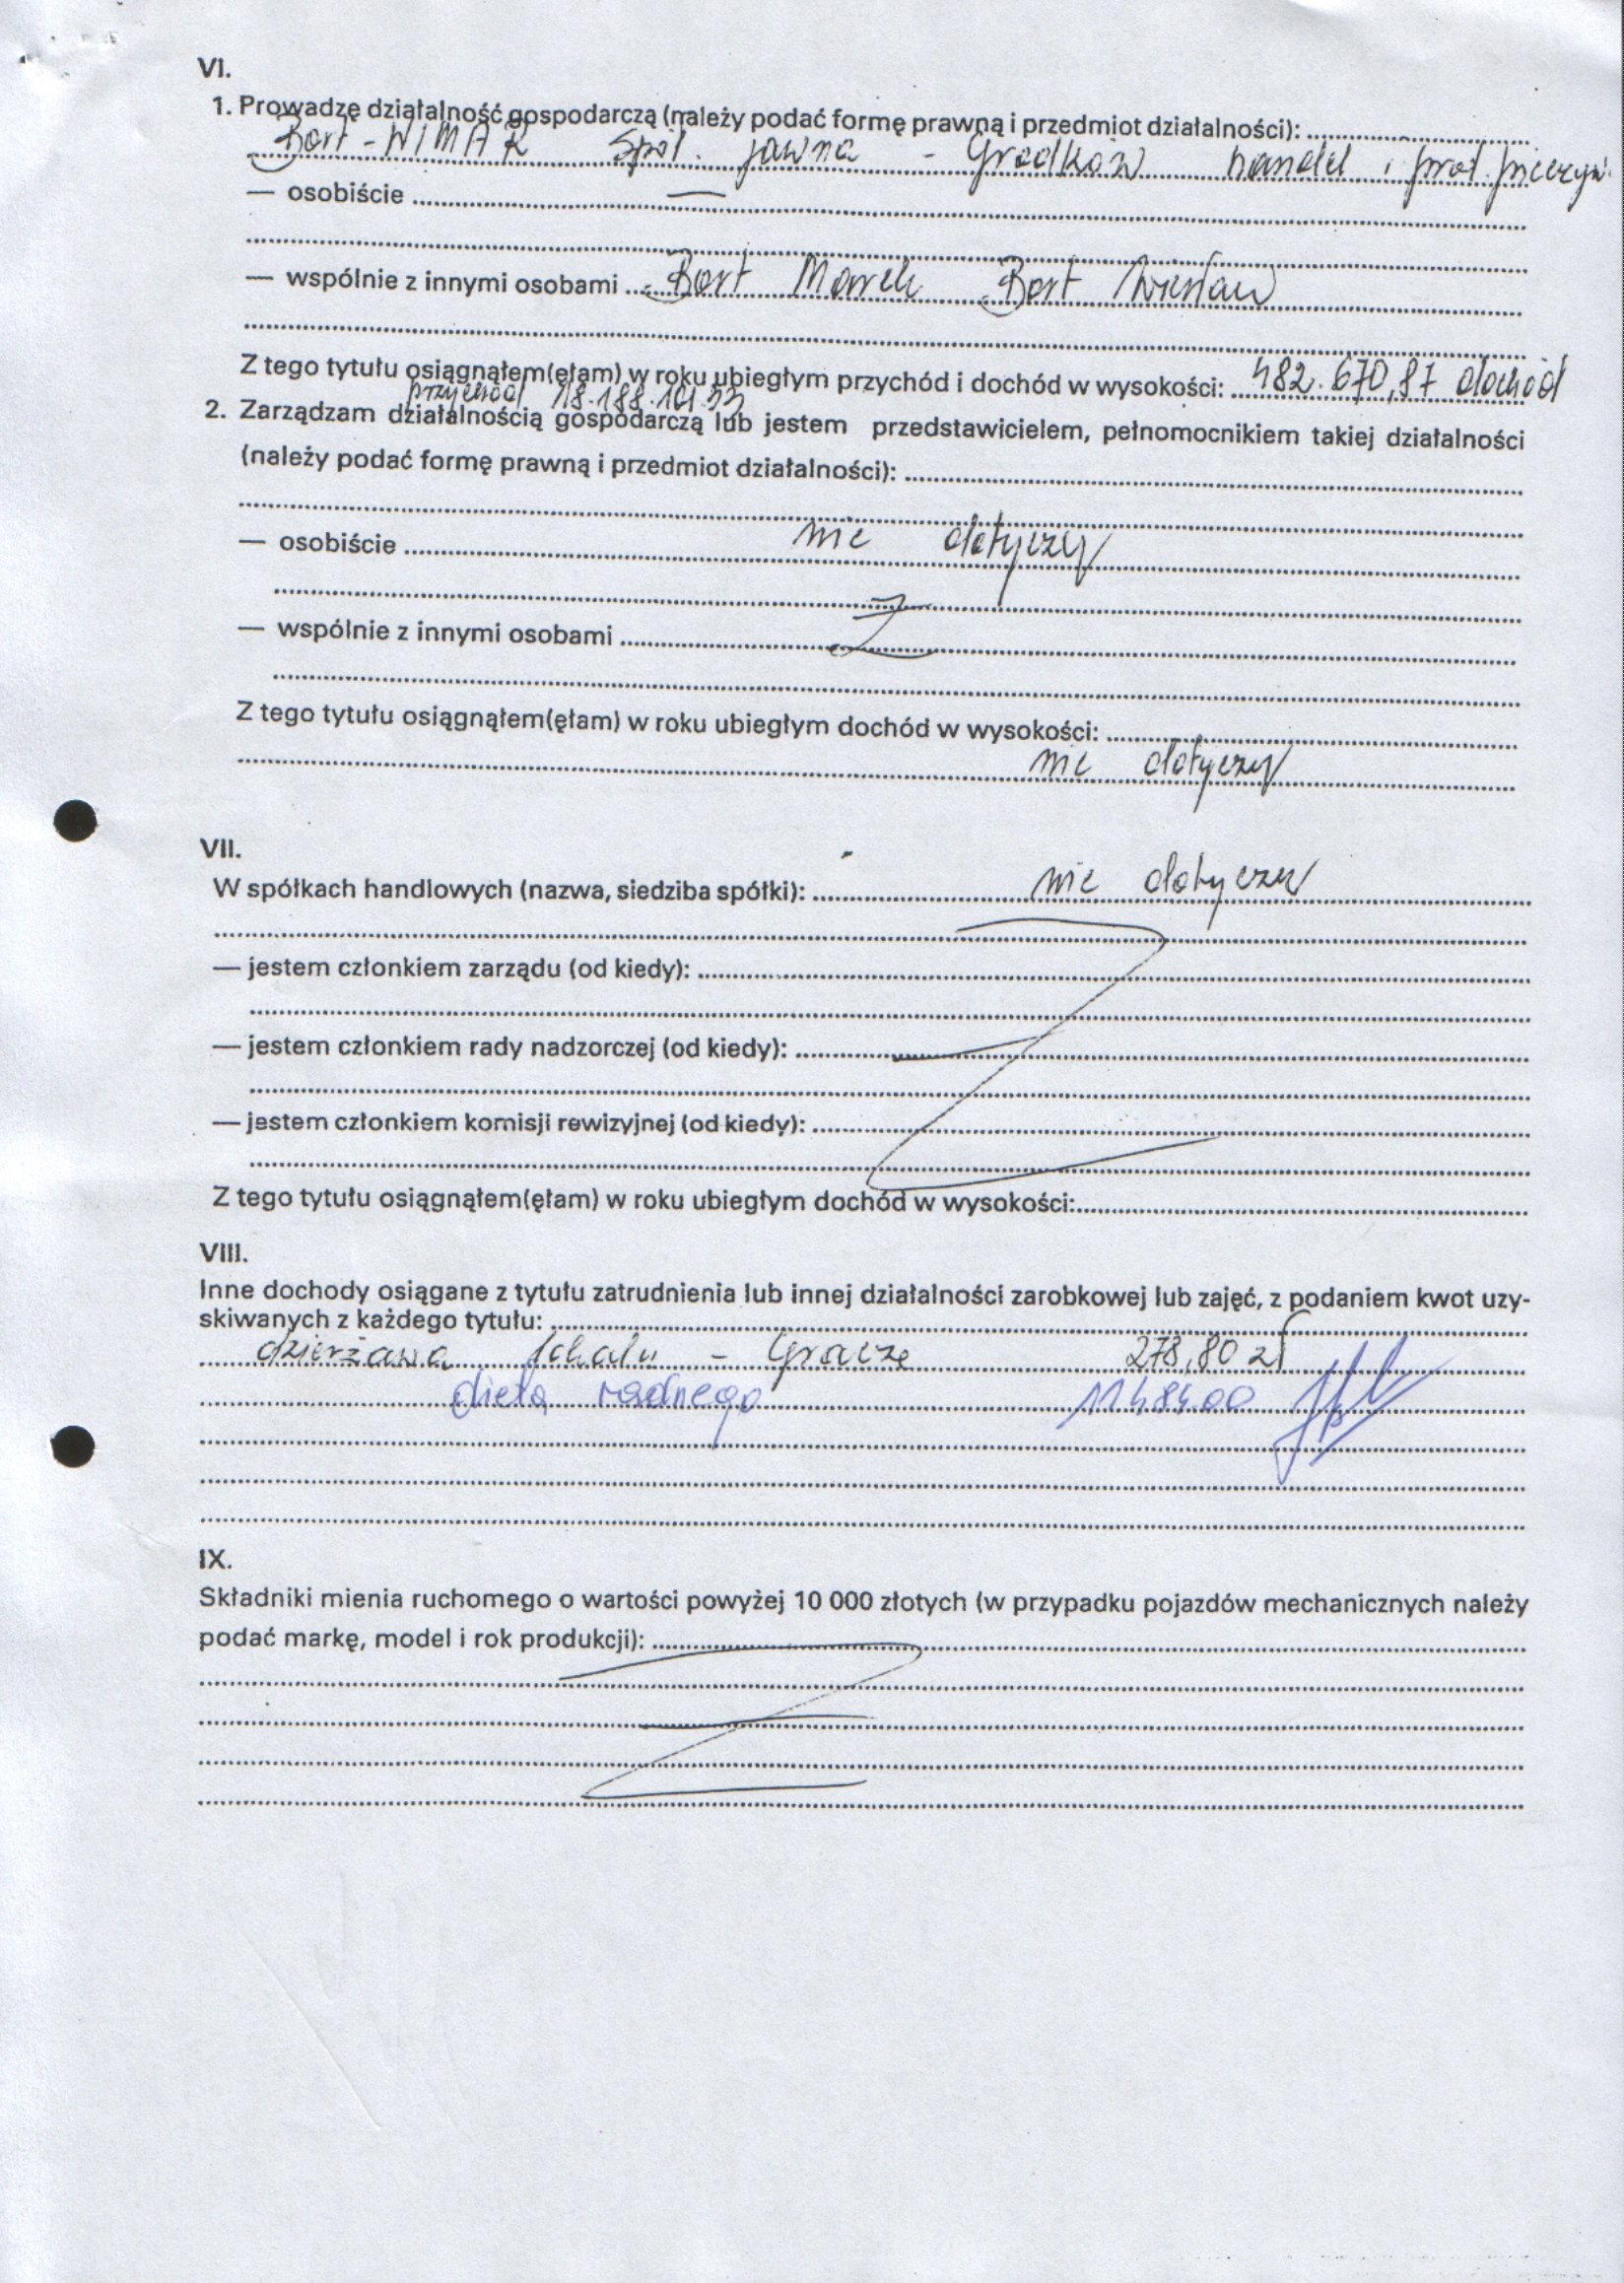 VI.
1. Prowadzę działalność gospodarczą (należy podać formę prawną i przedmiot działalności):
Bort-WIMAR Spół. jawna - Grodków handel i prod.
— osobiście —
— wspólnie z innymi osobami Bort Marek Bort Wiesław
Z tego tytułu osiągnąłem(ęłam) w roku ubiegłym przychód i dochód w wysokości: 482.670,87 dochód
przychód 18.188.101.53
2. Zarządzam działalnością gospodarczą lub jestem przedstawicielem, pełnomocnikiem takiej działalności
(należy podać formę prawną i przedmiot działalności):
— osobiście nie dotyczy
— wspólnie z innymi osobami
Z tego tytułu osiągnąłem(ęłam) w roku ubiegłym dochód w wysokości:
nie dotyczy
VII.
W spółkach handlowych (nazwa, siedziba spółki): nie dotyczy
— jestem członkiem zarządu (od kiedy):
— jestem członkiem rady nadzorczej (od kiedy):
— jestem członkiem komisji rewizyjnej (od kiedy):
Z tego tytułu osiągnąłem(ęłam) w roku ubiegłym dochód w wysokości:
VIII.
Inne dochody osiągane z tytułu zatrudnienia lub innej działalności zarobkowej lub zajęć, z podaniem kwot uzy-
skiwanych z każdego tytułu:
dzierżawa lokalu - Gracze 278,80 zł
dieta radnego 11484.00
IX.
Składniki mienia ruchomego o wartości powyżej 10 000 złotych (w przypadku pojazdów mechanicznych należy
podać markę, model i rok produkcji):